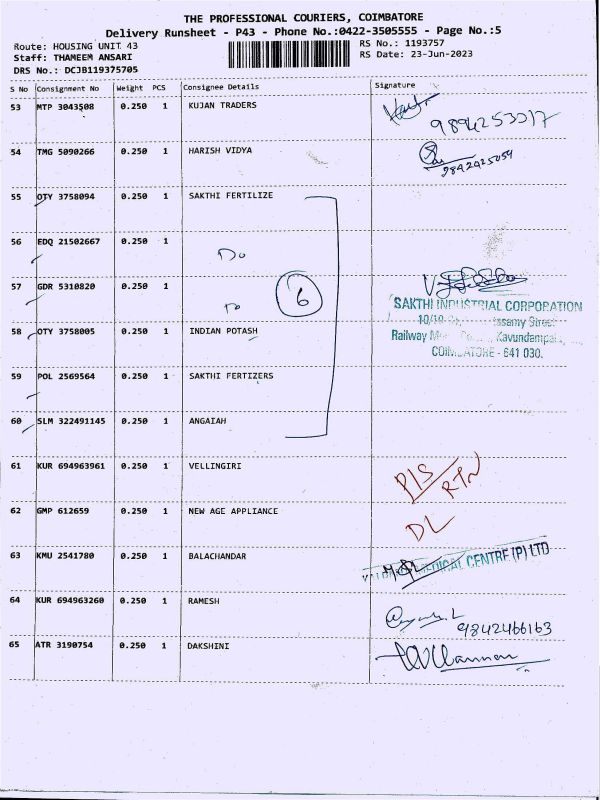 THE PROFESSIONAL COURIERS, COIMBATORE
Delivery Runsheet - P43 - Phone No.:0422-3505555 - Page No.:5
Route: HOUSING UNIT 43
RS No.: 1193757
Staff: THAMEEM ANSARI
RS Date: 23-Jun-2023
DRS No.: DCJB119375705
S No Consignment No Weight PCS Consignee Details Signature
53 MTP 3043508 0.250 1 KUJAN TRADERS
9894253317
54 TMG 5090266 0.250 1 HARISH VIDYA
9842425054
55 OTY 3758094 0.250 1 SAKTHI FERTILIZE
56 EDQ 21502667 0.250 1 Do
57 GDR 5310820 0.250 1 Do 6
SAKTHI INDUSTRIAL CORPORATION
58 OTY 3758005 0.250 1 INDIAN POTASH
Railway Kavundampal
COIMBATORE - 641 030.
59 POL 2569564 0.250 1 SAKTHI FERTIZERS
60 SLM 322491145 0.250 1 ANGAIAH
61 KUR 694963961 0.250 1 VELLINGIRI
PIS
RTN
62 GMP 612659 0.250 1 NEW AGE APPLIANCE
DL
63 KMU 2541780 0.250 1 BALACHANDAR
MEDICAL CENTRE (P) LTD
64 KUR 694963260 0.250 1 RAMESH
9842466163
65 ATR 3190754 0.250 1 DAKSHINI